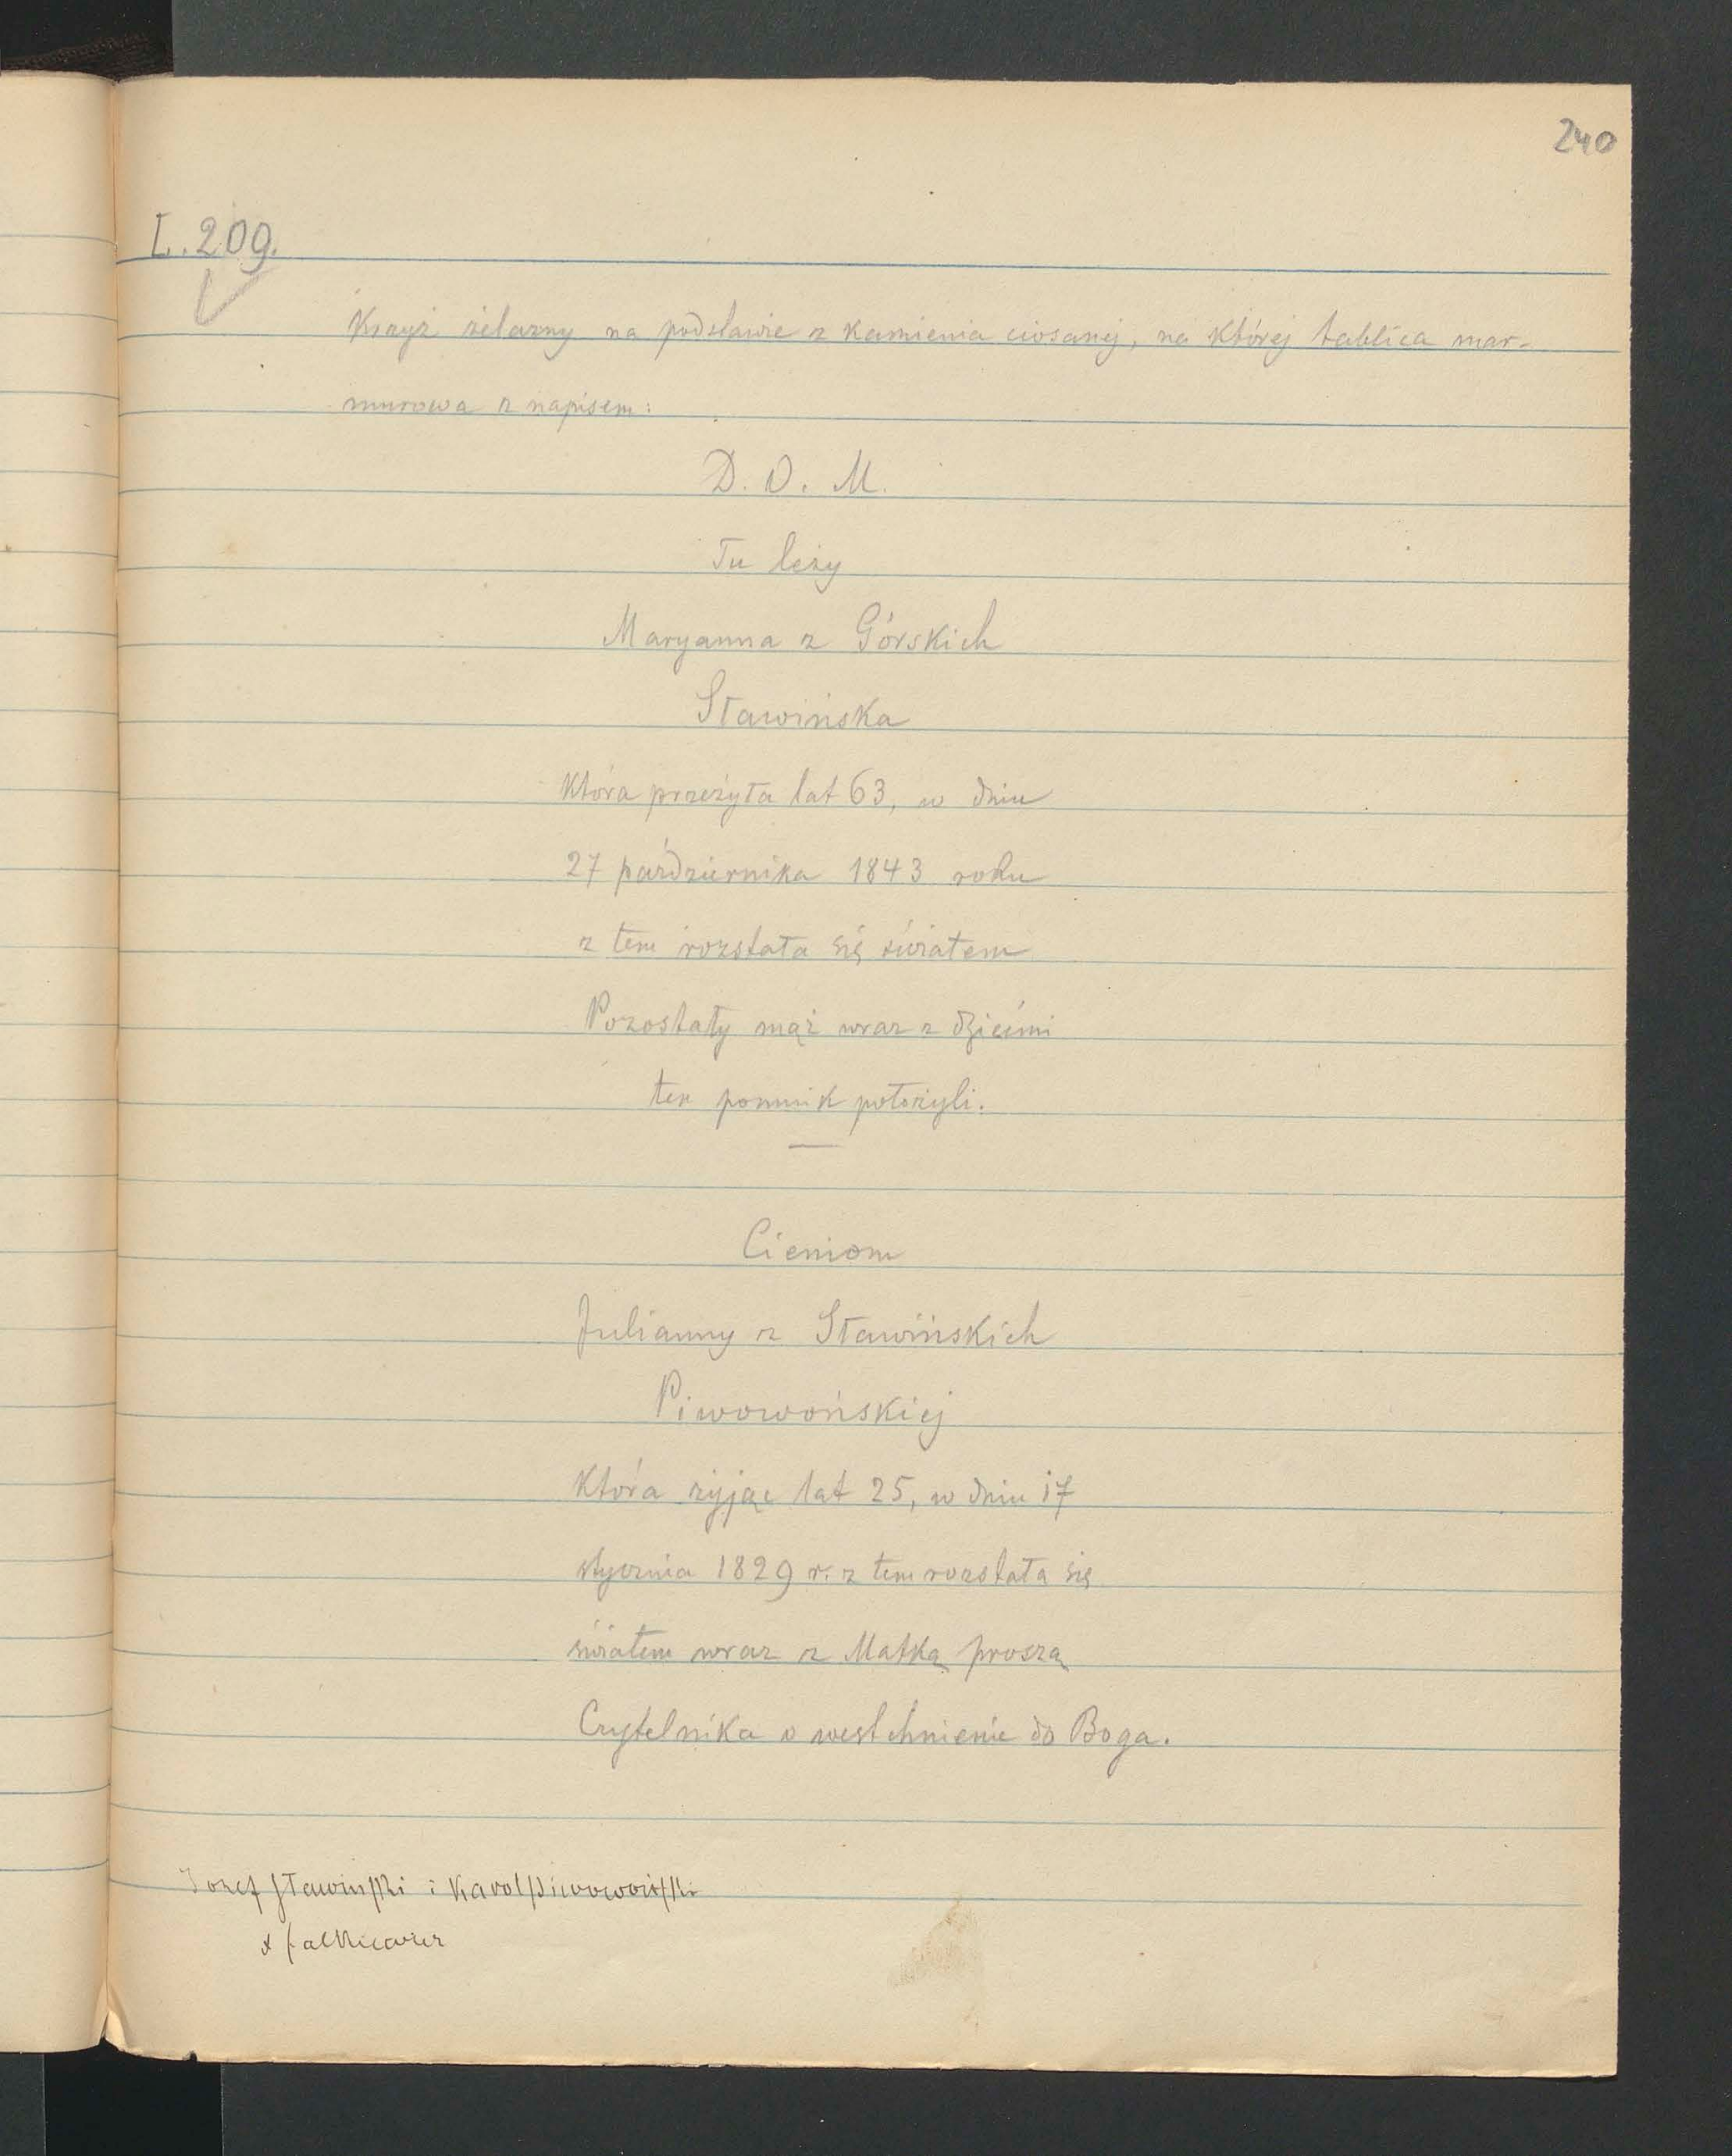 240
L. 209.
Krzyż żelazny na podstawie z kamienia ciosanej, na której tablica mar-
murowa z napisem:
D. O. M.
Tu leży
Maryanna z Górskich
Sławińska
która przeżyła lat 63, w dniu
27 października 1843 roku
z tem rozstała się światem
Pozostały mąż wraz z dziećmi
ten pomnik położyli.
Cieniom
Julianny z Sławińskich
Piwowońskiej
Która żyjąc lat 25, w dniu 17
stycznia 1829 r. z tem rozstała się
światem wraz z Matką proszą
Czytelnika o westchnienie do Boga.
Józef Sławiński i Karol Piwowoński